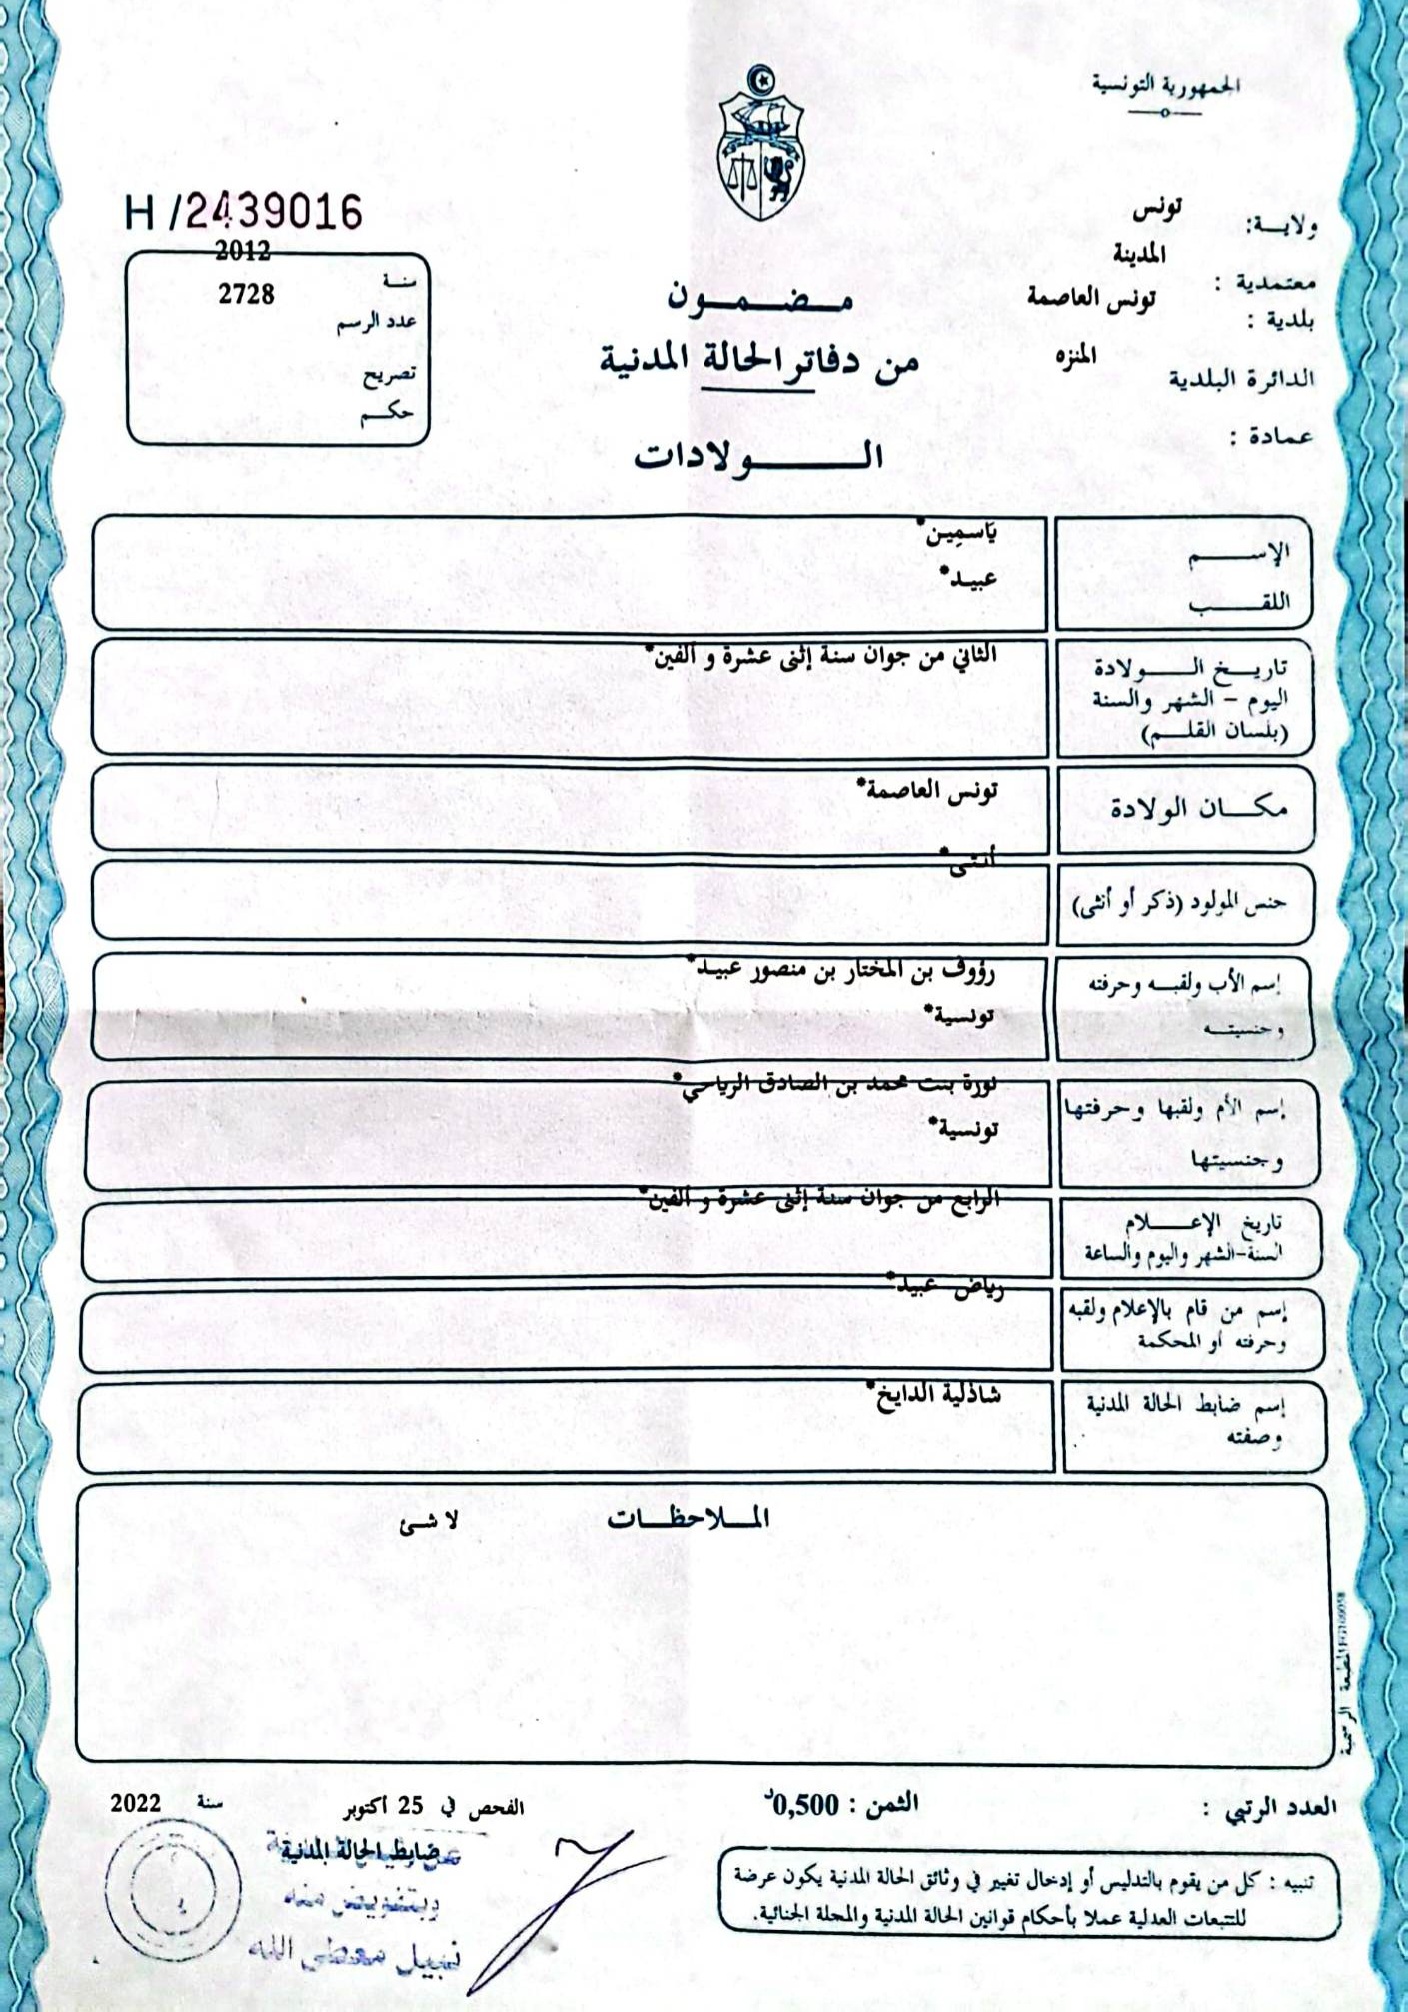 الجمهورية التونسية
ولايــة: تونس
معتمدية : المدينة
بلدية : تونس العاصمة
الدائرة البلدية المنزه
عمادة :
H /2439016
سنة 2012
عدد الرسم 2728
تصريح
حكم
مضمون
من دفاتر الحالة المدنية
الولادات
الإسم يَاسمِين*
اللقب عبيد*
تاريخ الولادة الثاني من جوان سنة إثنى عشرة و ألفين*
اليوم - الشهر والسنة
(بلسان القلم)
مكان الولادة تونس العاصمة*
جنس المولود (ذكر أو أنثى) أنثى*
إسم الأب ولقبه وحرفته رؤوف بن المختار بن منصور عبيد*
وجنسيته تونسية*
إسم الأم ولقبها وحرفتها نورة بنت محمد بن الصادق الرياحي*
وجنسيتها تونسية*
تاريخ الإعلام الرابع من جوان سنة إثنى عشرة و ألفين*
السنة-الشهر واليوم والساعة
إسم من قام بالإعلام ولقبه رياض عبيد*
وحرفته أو المحكمة
إسم ضابط الحالة المدنية شاذلية الدايخ*
وصفته
الملاحظات لا شئ
المطبعة الرسمية
العدد الرتبي :
الثمن : 0,500د
الفحص في 25 أكتوبر سنة 2022
ضابط الحالة المدنية
وبتفويض منه
نبيل معطى الله
تنبيه : كل من يقوم بالتدليس أو إدخال تغيير في وثائق الحالة المدنية يكون عرضة
للتتبعات العدلية عملا بأحكام قوانين الحالة المدنية والمجلة الجنائية.